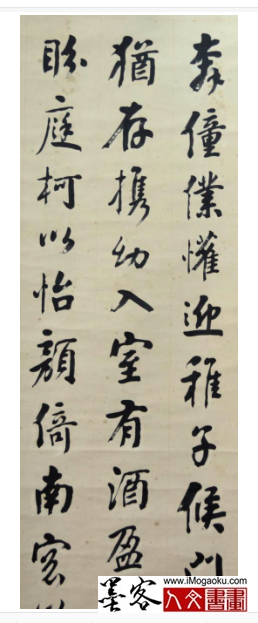 奔僮僕懽迎稚子候門
猶存携幼入室有酒盈
眄庭柯以怡顏倚南窓以
www.iMogaoku.com
墨客
人文書畫